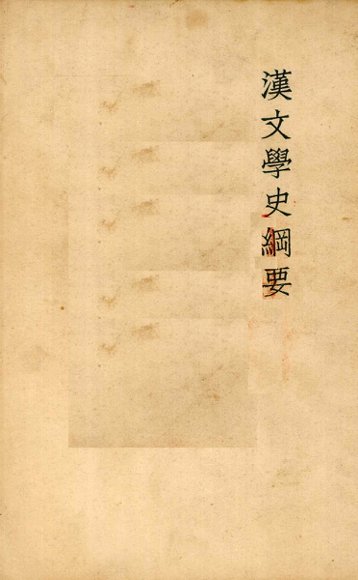 漢文學史綱要